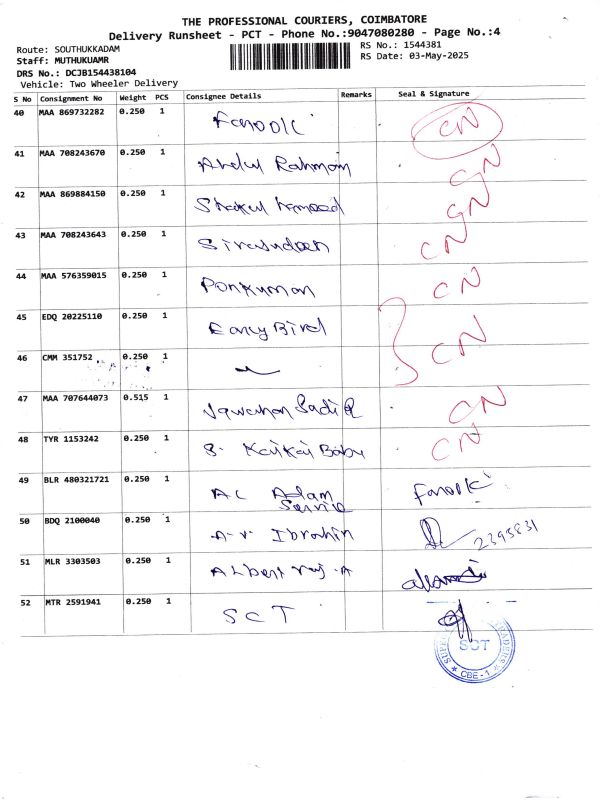 THE PROFESSIONAL COURIERS, COIMBATORE
Delivery Runsheet - PCT - Phone No.:9047080280 - Page No.:4
Route: SOUTHUKKADAM RS No.: 1544381
Staff: MUTHUKUAMR RS Date: 03-May-2025
DRS No.: DCJB154438104
Vehicle: Two Wheeler Delivery
S No Consignment No Weight PCS Consignee Details Remarks Seal & Signature
40 MAA 869732282 0.250 1 Farook CN
41 MAA 708243670 0.250 1 Abdul Rahman CN
42 MAA 869884150 0.250 1 Shakul Hameed CN
43 MAA 708243643 0.250 1 Sirajudeen CN
44 MAA 576359015 0.250 1 Ponkumar CN
45 EDQ 20225110 0.250 1 Early Bird
46 CMM 351752 0.250 1 CN
47 MAA 707644073 0.515 1 Jawahar Sadiq CN
48 TYR 1153242 0.250 1 S. Kaikai Babu CN
49 BLR 480321721 0.250 1 AC Adam Farook
Service
50 BDQ 2100040 0.250 1 A.V. Ibrahim 2395831
51 MLR 3303503 0.250 1 Albert raj. A
52 MTR 2591941 0.250 1 SCT
SCT
CBE-1